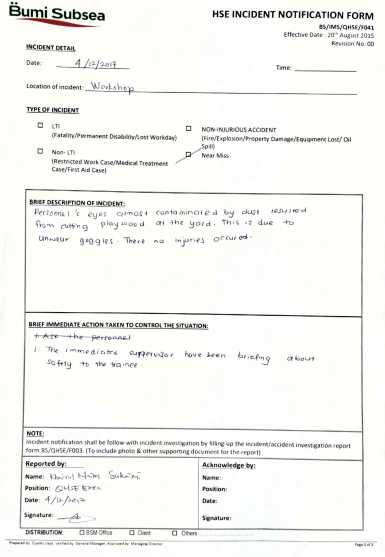 Bumi Subsea
HSE INCIDENT NOTIFICATION FORM
BS/IMS/QHSE/F041
Effective Date : 20th August 2015
Revision No: 00
INCIDENT DETAIL
Date: 4/12/2017
Time:
Location of incident: Workshop
TYPE OF INCIDENT
LTI
(Fatality/Permanent Disability/Lost Workday)
NON-INJURIOUS ACCIDENT
(Fire/Explosion/Property Damage/Equipment Lost/ Oil
Spill)
Non- LTI
(Restricted Work Case/Medical Treatment
Case/First Aid Case)
Near Miss
BRIEF DESCRIPTION OF INCIDENT:
Personnel's eyes almost contaminated by dust resulted
from cutting playwood at the yard. This is due to
unwear goggles. There no injuries occured.
BRIEF IMMEDIATE ACTION TAKEN TO CONTROL THE SITUATION:
1. Ask the personnel
1. The immediates suppervisor have been briefing about
safety to the trainee.
NOTE:
Incident notification shall be follow with incident investigation by filling-up the incident/accident investigation report
form BS/QHSE/F003. (To include photo & other supporting document for the report)
Reported by:
Acknowledge by:
Name: Khairul Naim
Name:
Position: QHSE Exec.
Position:
Date: 4/12/2017
Date:
Signature:
Signature:
DISTRIBUTION: BSM Office Client Others
Prepared by Quality Dept, Verified by General Manager, Approved by Managing Director
Page 1 of 1